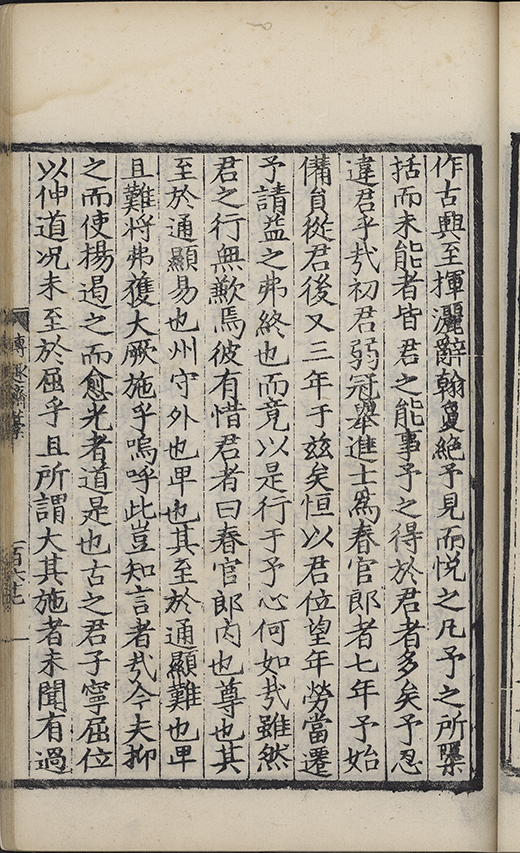 作古興至揮灑辭翰敻絶予見而悅之凡予之所檃
括而未能者皆君之能事予之得於君者多矣予忍
違君乎㢤初君弱冠舉進士爲春官郎者七年予始
備員從君後又三年于兹矣恒以君位望年勞當遷
予請益之弗終也而竟以是行于予心何如㢤雖然
君之行無歉焉彼有惜君者曰春官郎内也尊也其
至於通顯易也州守外也卑也其至於通顯難也卑
且難將弗獲大厥施乎嗚呼此豈知言者㢤今夫抑
之而使揚遏之而愈光者道是也古之君子寧屈位
以伸道况未至於屈乎且所謂大其施者未聞有過